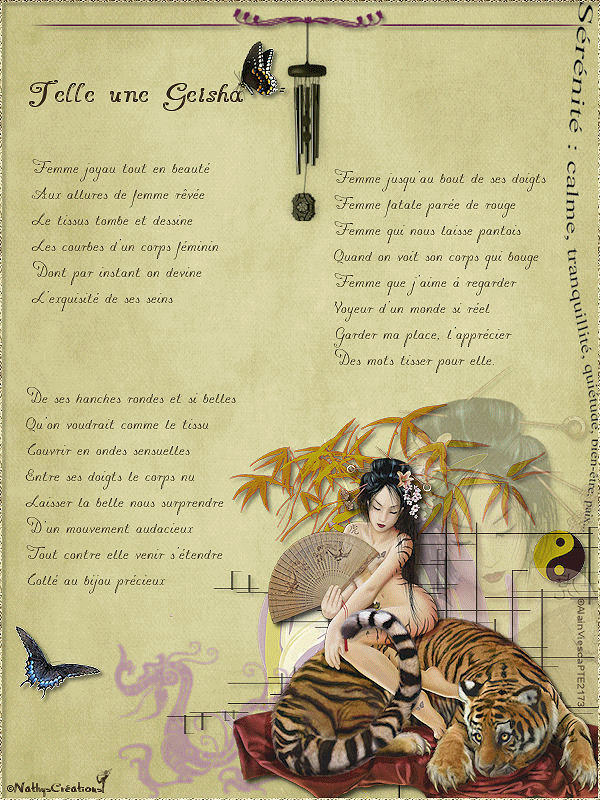 Telle une Geisha
Femme joyau tout en beauté
Aux allures de femme rêvée
Le tissus tombe et dessine
Les courbes d'un corps féminin
Dont par instant on devine
L'exquisité de ses seins
De ses hanches rondes et si belles
Qu'on voudrait comme le tissu
Couvrir en ondes sensuelles
Entre ses doigts le corps nu
Laisser la belle nous surprendre
D'un mouvement audacieux
Tout contre elle venir s'étendre
Collé au bijou précieux
Femme jusqu'au bout de ses doigts
Femme fatale parée de rouge
Femme qui nous laisse pantois
Quand on voit son corps qui bouge
Femme que j'aime à regarder
Voyeur d'un monde si réel
Garder ma place, l'apprécier
Des mots tisser pour elle.
Sérénité : calme, tranquillité, quiétude, bien-être, paix,
©AlainViesdaPTE2173
©NathysCréations